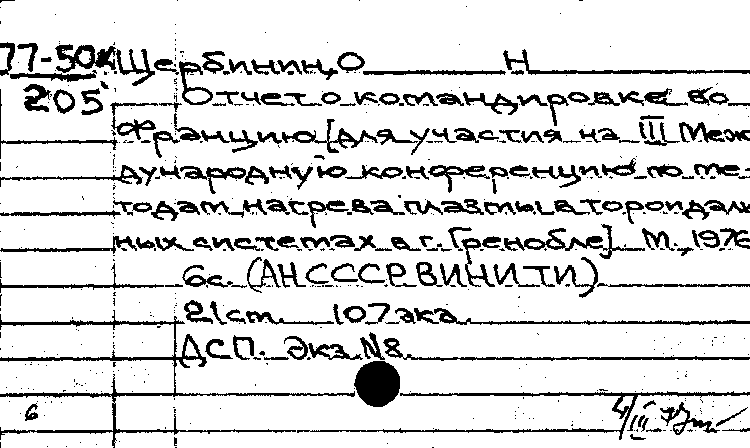 77-50к Щербинин, О Н
205 Отчет о командировке во
Францию [для участия на III Меж
дународную конференцию по ме-
тодам нагрева плазмы в тороидаль
ных системах в г. Гренобле]. М., 1976
6с. (АН СССР ВИНИТИ)
21 ст. 107 экз.
ДСП. Экз. №8.
6 4/III